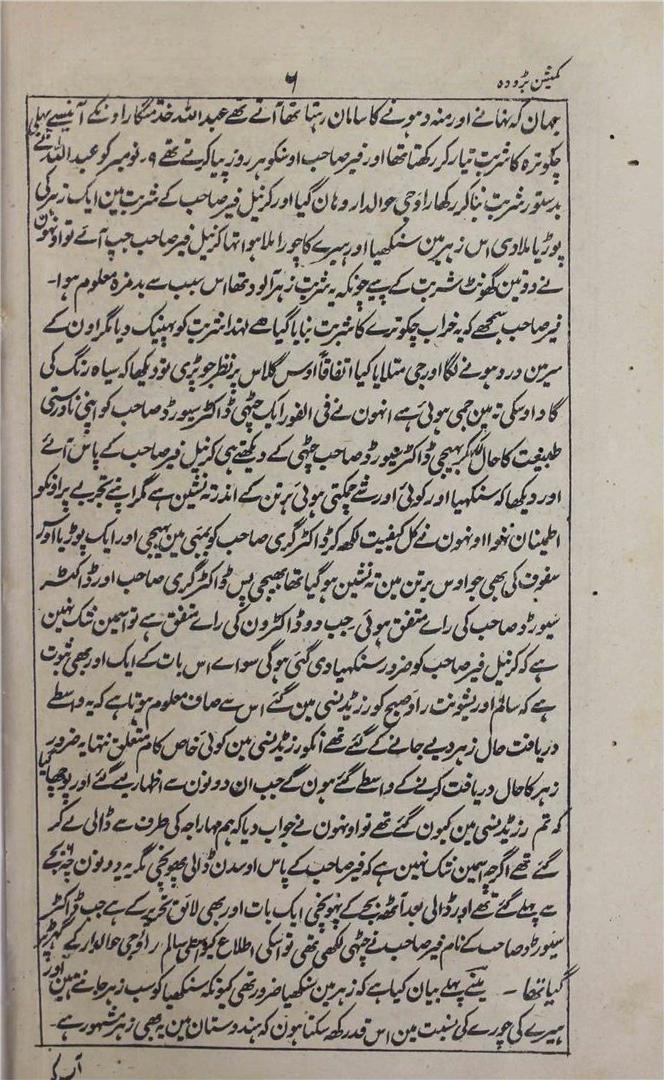 کمیشن بڑودہ
۶
جہان کہ نہانے اور منہ دہونے کا سامان رہتا تھا آتے تھے عبداللہ خدمتگار اونکے آنیسے پہلے
چکوترہ کا شربت تیار کر رکھتا تھا اور فیر صاحب اوسکو ہر روز پیا کرتے تھے ۹۔ نومبر کو عبداللہ نے
بدستور شربت بنا کر رکھا راوجی حوالدار وہان گیا اور کرنیل فیر صاحب کے شربت مین ایک زہر کی
پوڑیا ملا دی اس زہر مین سنکھیا اور ہیرے کا چورا ملا ہوا تہا کرنیل فیر صاحب جب آئے تو اونہون
نے دو تین گھونٹ شربت کے پیے چونکہ یہ شربت زہر آلود تھا اس سبب سے بدمزہ معلوم ہوا۔
فیر صاحب سمجھے کہ یہ خراب چکوترے کا شربت بنایا گیا ہے لہذا شربت کو پہینک دیا مگر اون کے
سر مین درد ہونے لگا اور جی متلایا کیا اتفاقاً اوس گلاس پر نظر جو پڑی تو دیکھا کہ سیاہ رنگ کی
گاد اوسکی تہ مین جمی ہوئی ہے انہون نے فی الفور ایک چٹہی ڈاکٹر سیورڈ صاحب کو اپنی نادرستی
طبیعت کا حال لکہکر بہیجی ڈاکٹر سیورڈ صاحب چٹہی کے دیکھتے ہی کرنیل فیر صاحب کے پاس آئے
اور دیکھا کہ سنکہیا اور کوئی اور شے چمکتی ہوئی برتن کے اندر تہ نشین ہے مگر اپنے تجربے پر اونکو
اطمنان نہوا اونہون نے کل کیفیت لکھ کر ڈاکٹر گری صاحب کو بمبئی مین بہیجی اور ایک پوڑیا اوس
سفوف کی بھی جو اوس برتن مین تہ نشین ہو گیا تھا بھیجی پس ڈاکٹر گری صاحب اور ڈاکٹر
سیورڈ صاحب کی رائے متفق ہوئی جب دو ڈاکٹرون کی رائے متفق ہے تو اسمین شک نہین
ہے کہ کرنیل فیر صاحب کو ضرور سنکہیا دی گئی ہوگی سواے اس بات کے ایک اور بھی ثبوت
ہے کہ سالم اور یشونت راو صبح کو رزیڈنسی مین گئے اس سے صاف معلوم ہوتا ہے کہ یہ واسطے
دریافت حال زہر دیے جانے کے گئے تھے انکو رزیڈنسی مین کوئی خاص کام متعلق نتہا یہ ضرور
زہر کا حال دریافت کرنے کے واسطے گئے ہون گے جب ان دونون سے اظہار لیے گئے اور پوچھا گیا
کہ تم رزیڈنسی مین کیون گئے تھے تو اونہون نے جواب دیا کہ ہم مہاراجہ کی طرف سے ڈالی لے کر
گئے تھے اگرچہ اسمین شک نہین ہے کہ فیر صاحب کے پاس اوسدن ڈالی پہونچی مگر یہ دونون چھ بجے
سے پہلے گئے تھے اور ڈالی بعد آٹھ بجے کے پہونچی ایک بات اور بھی لائق تحریر کے ہے جب ڈاکٹر
سیورڈ صاحب کے نام فیر صاحب نے چٹھی لکھی تھی تو اسکی اطلاع کیواسطے سالم راوجی حوالدار کے گھر پر
گیا تھا ۔ مینے پہلے بیان کیا ہے کہ زہر مین سنکھیا ضرور تھی کیونکہ سنکھیا کو سب زہر جانتے ہین اور
ہیرے کی چورے کی نسبت مین اس قدر کہ سکتا ہون کہ ہندوستان مین یہ بھی زہر مشہور ہے۔